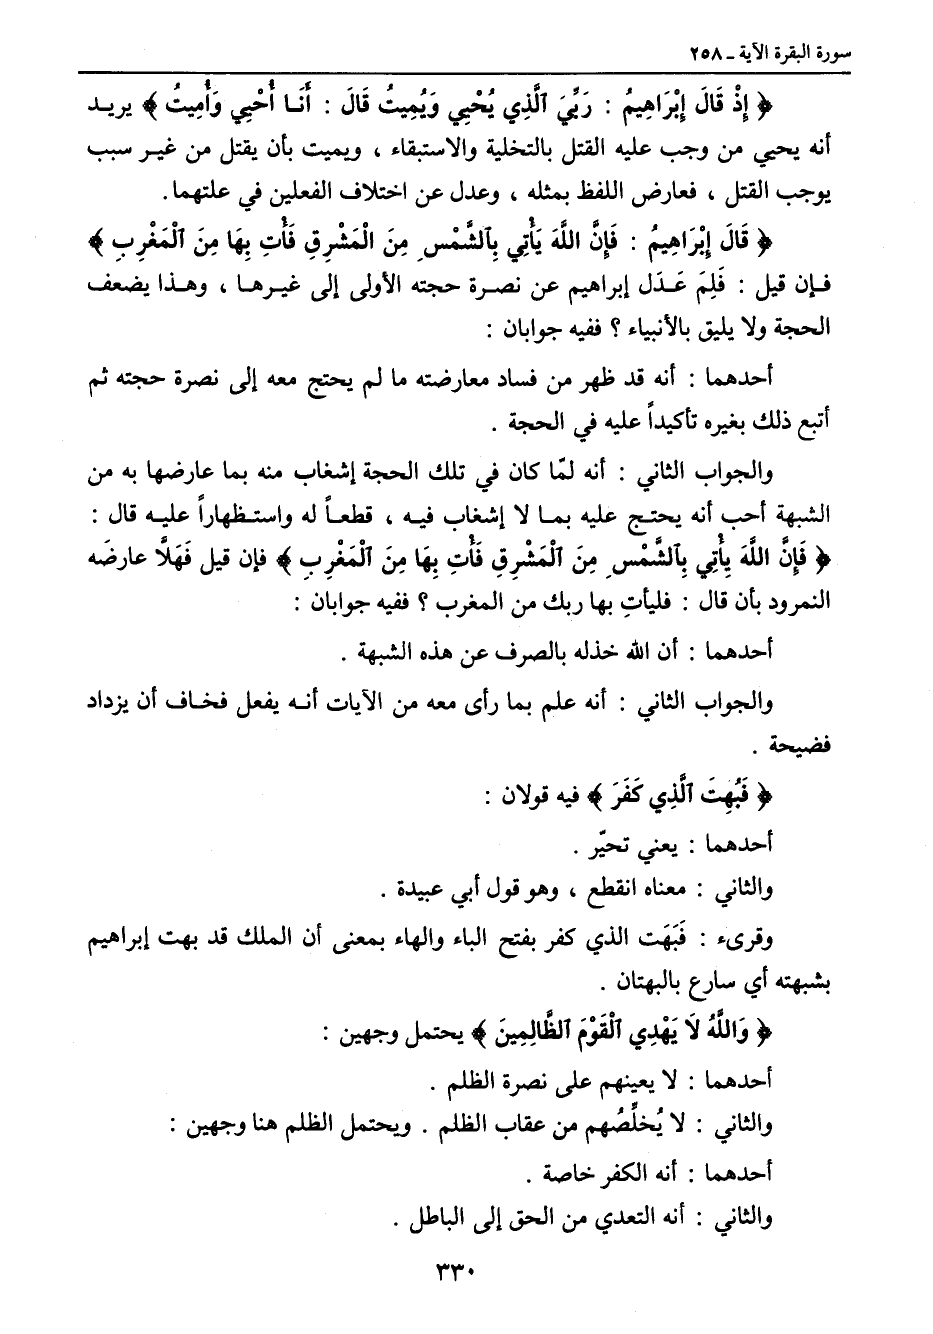 سورة البقرة الآية ـ ٢٥٨
﴿ إِذْ قَالَ إِبْرَاهِيمُ : رَبِّيَ ٱلَّذِي يُحْيِي وَيُمِيتُ قَالَ : أَنَا أُحْيِي وَأُمِيتُ ﴾ يريد
أنه يحيي من وجب عليه القتل بالتخلية والاستبقاء ، ويميت بأن يقتل من غير سبب
يوجب القتل ، فعارض اللفظ بمثله ، وعدل عن اختلاف الفعلين في علتهما.
﴿ قَالَ إِبْرَاهِيمُ : فَإِنَّ اللَّهَ يَأْتِي بِٱلشَّمْسِ مِنَ الْمَشْرِقِ فَأْتِ بِهَا مِنَ ٱلْمَغْرِبِ ﴾
فإن قيل : فَلِمَ عَدَل إبراهيم عن نصرة حجته الأولى إلى غيرها ، وهذا يضعف
الحجة ولا يليق بالأنبياء ؟ ففيه جوابان :
أحدهما : أنه قد ظهر من فساد معارضته ما لم يحتج معه إلى نصرة حجته ثم
أتبع ذلك بغيره تأكيداً عليه في الحجة .
والجواب الثاني : أنه لمّا كان في تلك الحجة إشغاب منه بما عارضها به من
الشبهة أحب أنه يحتج عليه بما لا إشغاب فيه ، قطعاً له واستظهاراً عليه قال :
﴿ فَإِنَّ اللَّهَ يِأْتِي بِٱلشَّمْسِ مِنَ ٱلْمَشْرِقِ فَأْتِ بِهَا مِنَ ٱلْمَغْرِبِ ﴾ فإن قيل فَهَلَّا عارضَه
النمرود بأن قال : فليأتِ بها ربك من المغرب ؟ ففيه جوابان :
أحدهما : أن الله خذله بالصرف عن هذه الشبهة .
والجواب الثاني : أنه علم بما رأى معه من الآيات أنه يفعل فخاف أن يزداد
فضيحة .
﴿ فَبُهِتَ ٱلَّذِي كَفَرَ ﴾ فيه قولان :
أحدهما : يعني تحيّر .
والثاني : معناه انقطع ، وهو قول أبي عبيدة .
وقرىء : فَبَهَت الذي كفر بفتح الباء والهاء بمعنى أن الملك قد بهت إبراهيم
بشبهته أي سارع بالبهتان .
﴿ وَاللَّهُ لَا يَهْدِي ٱلْقَوْمَ ٱلظَّالِمِينَ ﴾ يحتمل وجهين :
أحدهما : لا يعينهم على نصرة الظلم .
والثاني : لا يُخلِّصُهم من عقاب الظلم . ويحتمل الظلم هنا وجهين :
أحدهما : أنه الكفر خاصة .
والثاني : أنه التعدي من الحق إلى الباطل .
٣٣٠